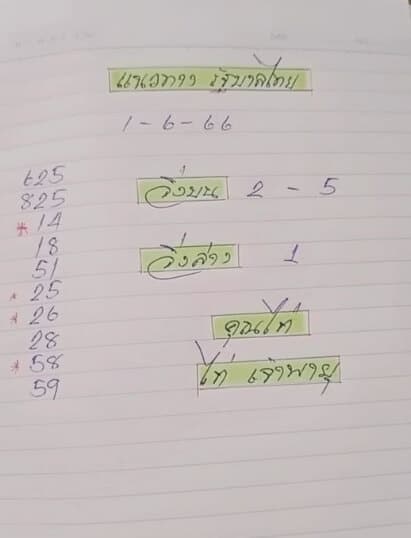 แนวทาง รัฐบาลไทย
1 - 6 - 66
625
825
* 14
18
51
* 25
* 26
28
* 58
59
วิ่งบน 2 - 5
วิ่งล่าง 1
คุณไท่
ไท่ เจ้าพายุ